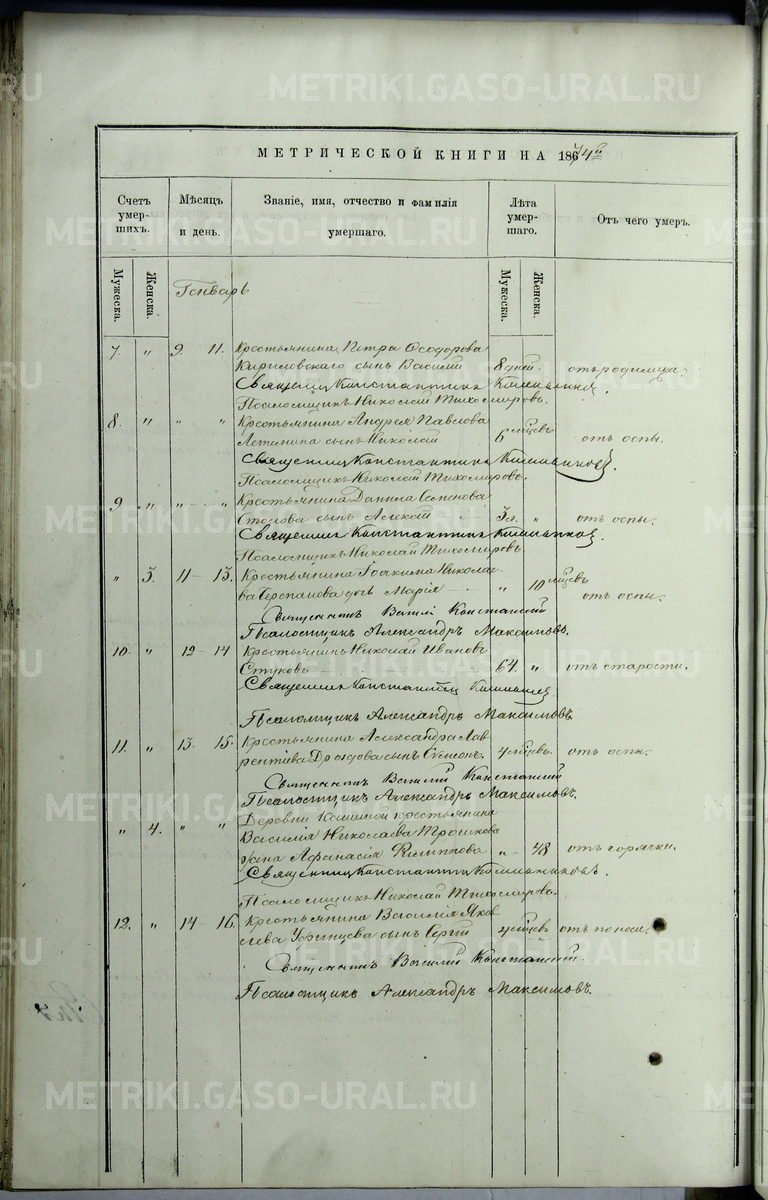 METRIKI.GASO-URAL.RU
МЕТРИЧЕСКОЙ КНИГИ НА 1874й
Счетъ умер- шихъ.
Мѣсяцъ и день.
Званіе, имя, отчество и фамилія умершаго.
Лѣта умер- шаго.
Отъ чего умеръ.
Мужеска. Женска. Мужеска. Женска.
Генварь
7. " 9. 11. Крестьянина Петра Ѳеодорова
Кириловскаго сынъ Василій 8 дней. отъ родимца.
Священникъ Константинъ
Псаломщикъ Николай Тихомировъ.
8. " " " Крестьянина Андрея Павлова
сынъ Николай 6 мѣсцевъ отъ оспы.
Священникъ Константинъ
Псаломщикъ Николай Тихомировъ.
9 " " " Крестьянина Данила Семенова
сынъ Алексѣй 3 г. " отъ оспы.
Священникъ Константинъ
Псаломщикъ Николай Тихомировъ
" 3. 11 – 13. Крестьянина Іоакима Николае-
ва дочь Марія " 10 мѣсцевъ отъ оспы.
Священникъ Василій
Псаломщикъ Александръ Максимовъ.
10. " 12 – 14 Крестьянинъ Николай Ивановъ
Стуковъ 64. " отъ старости.
Священникъ Константинъ
Псаломщикъ Александръ Максимовъ
11. " 13. 15. Крестьянина Александра Лав-
рентіева Дроздова сынъ Сѵмеонъ. 4 мѣсцевъ. отъ оспы.
Священникъ Василій
Псаломщикъ Александръ Максимовъ.
" 4. " " Деревни крестьянина
Василія Николаева Трошкова
жена Афанасія Филиппова " – 48 отъ горячки.
Священникъ Константинъ
Псаломщикъ Николай Тихомировъ.
12. " 14 16. Крестьянина Василія Яков-
лева сынъ Сергій 4 мѣсцевъ отъ поноса.
Священникъ Василій
Псаломщикъ Александръ Максимовъ.